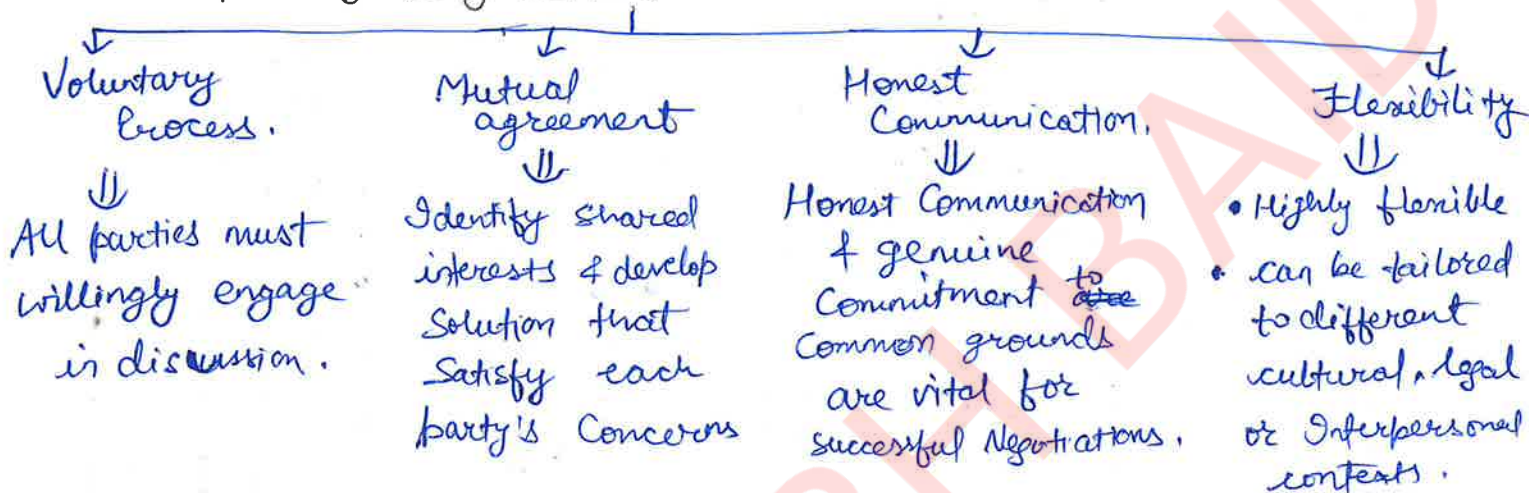 Voluntary
Process.
All parties must
willingly engage
in discussion.
Mutual
agreement
Identify shared
interests & develop
Solution that
Satisfy each
party's Concerns
Honest
Communication.
Honest Communication
& genuine
Commitment to
Common grounds
are vital for
successful Negotiations.
Flexibility
• Highly flexible
• can be tailored
to different
cultural, legal
or Interpersonal
contexts.
BAID